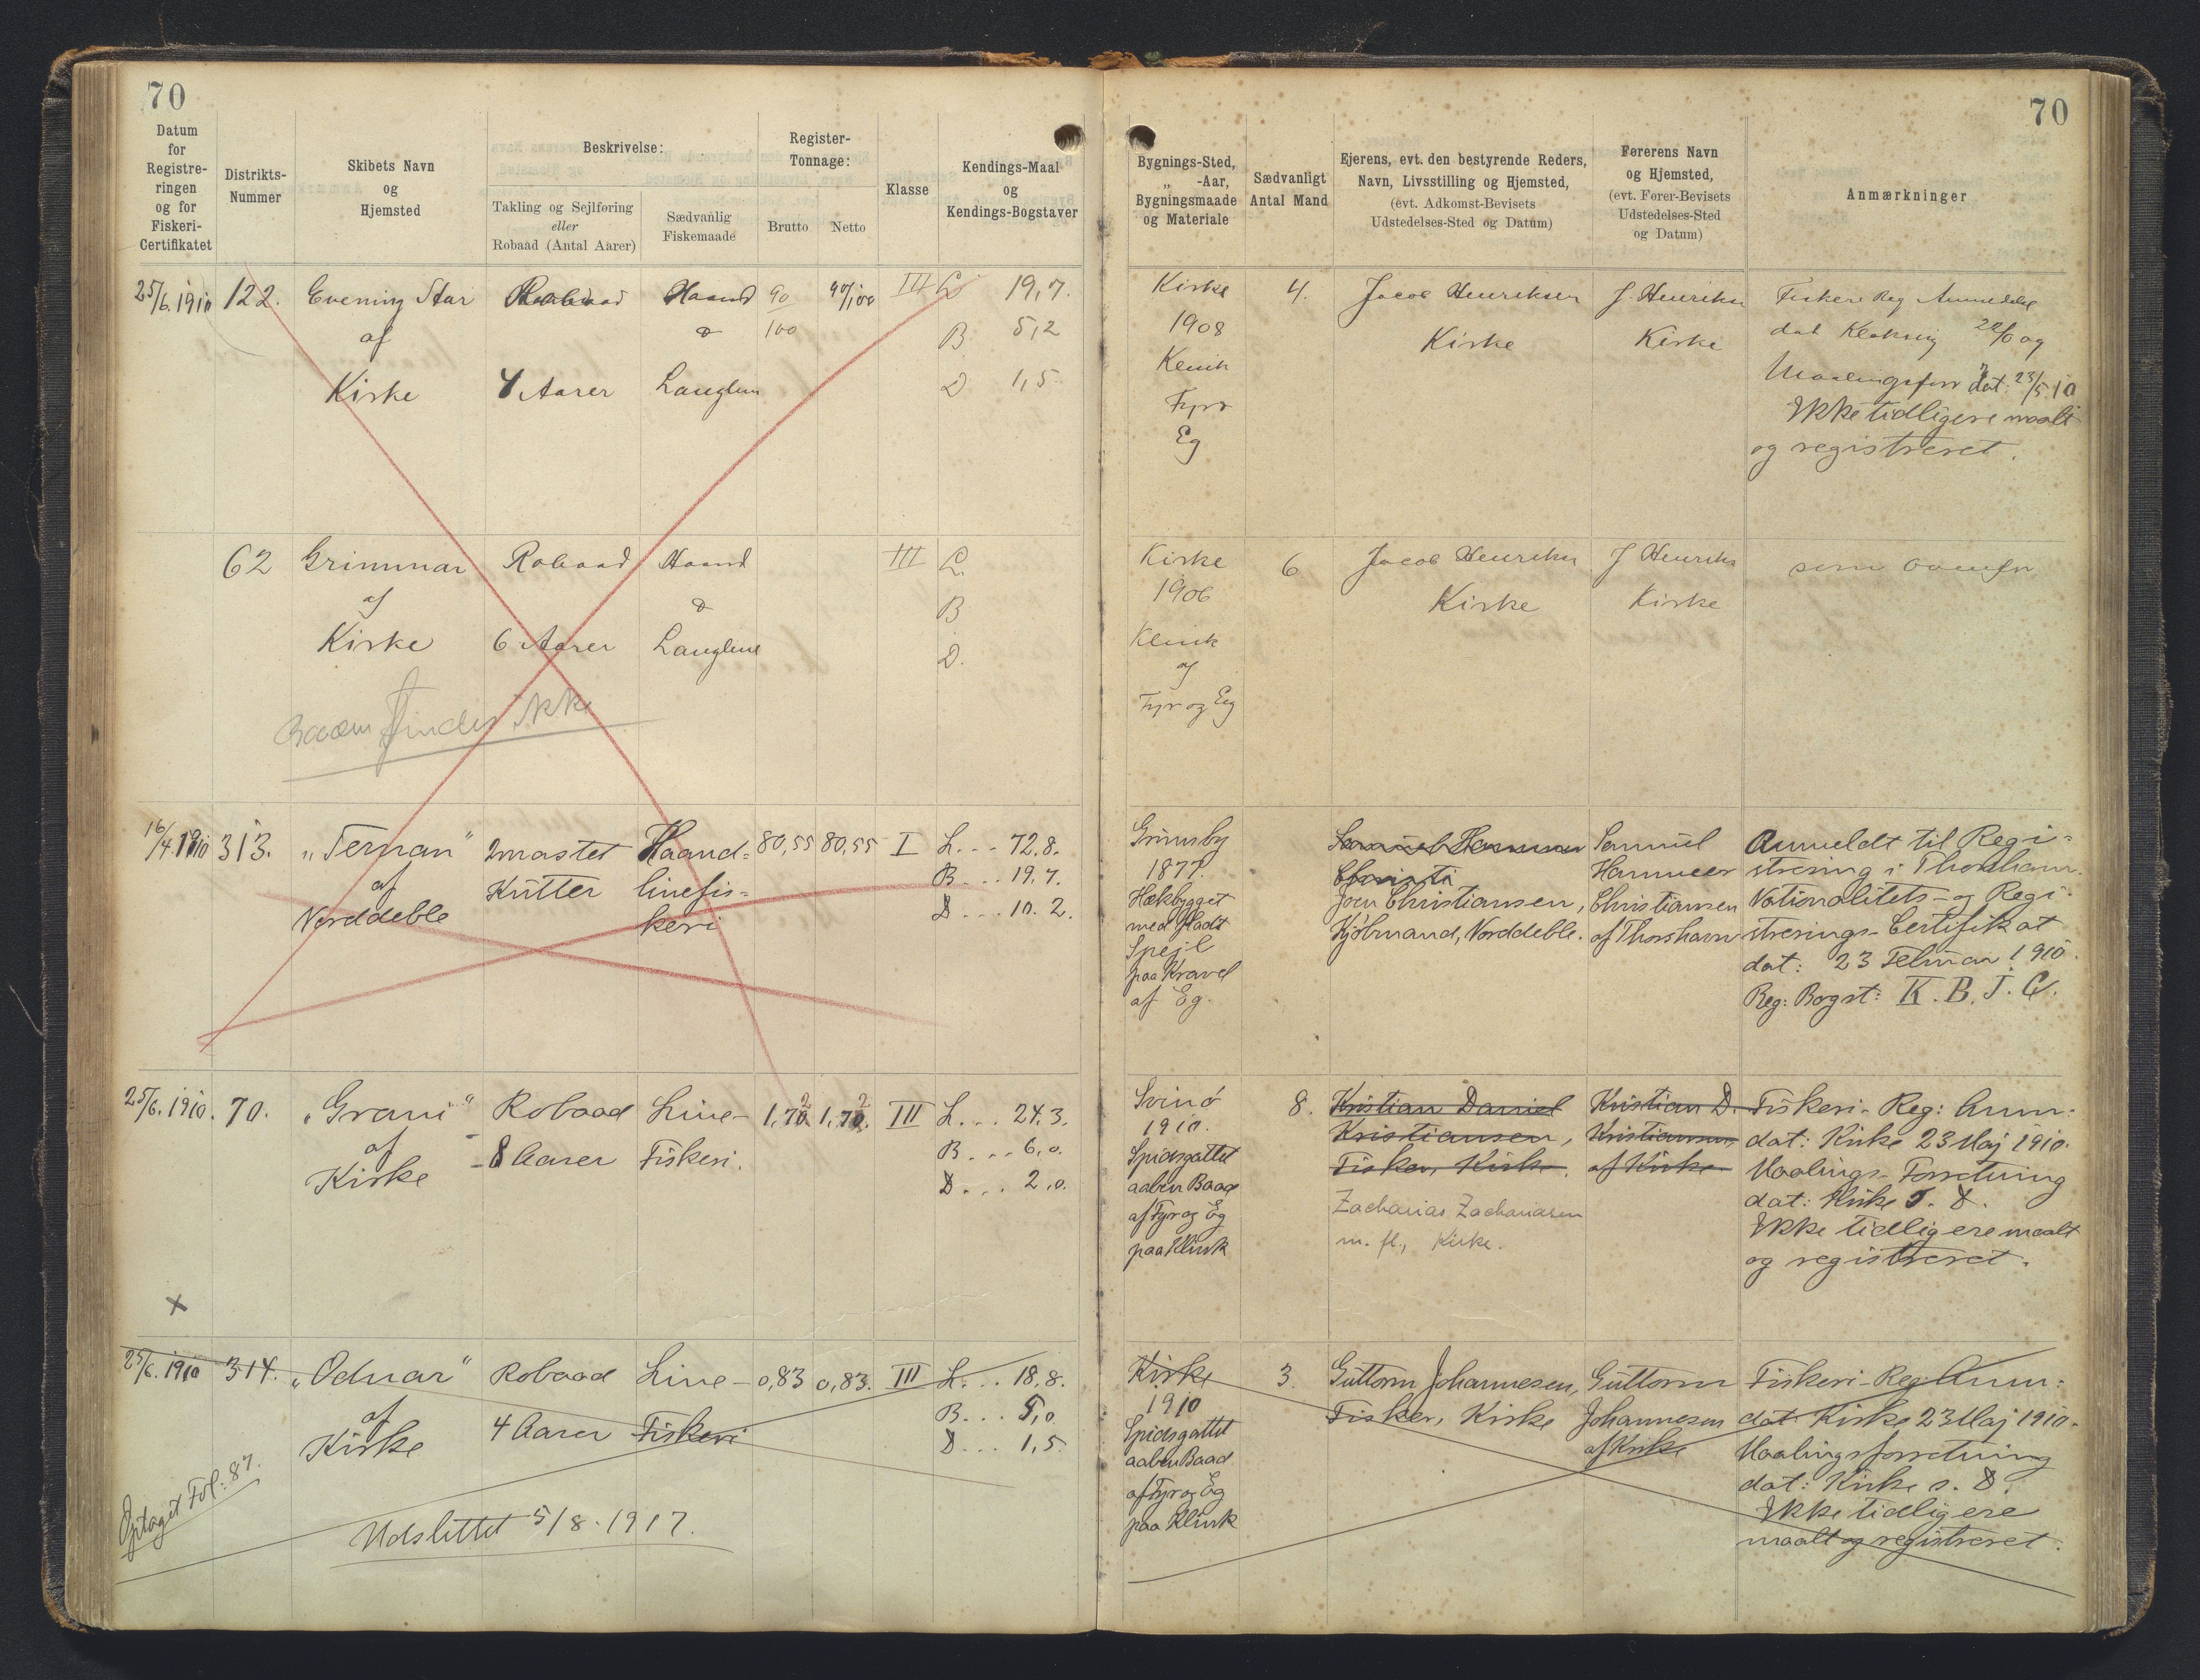 70
70
Datum
for
Registre-
ringen
og for
Fiskeri-
Certifikatet
Distrikts-
Nummer
Skibets Navn
og
Hjemsted
Beskrivelse:
Takling og Sejlføring
eller
Robaad (Antal Aarer)
Sædvanlig
Fiskemaade
Register-
Tonnage:
Brutto
Netto
Klasse
Kendings-Maal
og
Kendings-Bogstaver
Bygnings-Sted,
„ -Aar,
Bygningsmaade
og Materiale
Sædvanligt
Antal Mand
Ejerens, evt. den bestyrende Reders,
Navn, Livsstilling og Hjemsted,
(evt. Adkomst-Bevisets
Udstedelses-Sted og Datum)
Førerens Navn
og Hjemsted,
(evt. Fører-Bevisets
Udstedelses-Sted
og Datum)
Anmærkninger
25/6.1910
122.
Evening Star
af
Kirke
4 Aarer
Haand
&
Langline
90
100
90/100
III
L 19,7.
B. 5,2
D 1,5
Kirke
1908
Klink
Fyr &
Eg
4.
Jacob Henriksen
Kirke
J. Henriksen
Kirke
Fiskeri Reg Anmeldelse
dat Klaksvig og
Maalingsforr dat: 23/5.10
Ikke tidligere maalt
og registreret.
62
Grimmar
af
Kirke
Robaad
6 Aarer
Haand
&
Langline
III
L.
B
D.
Kirke
1906
Klink
af
Fyr og Eg
6
Jacob Henriksen
Kirke
J Henriksen
Kirke
som ovenfor
Baaden findes ikke
16/4 1910
313.
„Ternan"
af
Norddeble
2mastet
Kutter
Haand-
linefis-
keri
80,55
80,55
I
L... 72.8.
B... 19.7.
D... 10.2.
Grimsby
1877.
Hækbygget
med fladt
Spejl
paa Kravel
af Eg.
Samuel Hammer
Christi
Joen Christiansen,
Kjøbmand, Norddeble.
Samuel
Hammer
Christiansen
af Thorshavn
Anmeldt til Regi-
strering i Thorshavn.
Nationalitets- og Regi-
strerings-Certifikat
dat: 23 Februar 1910.
Reg: Bogst: K.B.J.C.
25/6.1910.
70.
„Grani"
af
Kirke
Robaad
-8 Aarer
Line-
Fiskeri.
1,72
1,72.
III
L... 24,3.
B... 6,0.
D... 2,0.
Svinö
1910.
Spidsgattet
aaben Baad
af Fyr og Eg
paa Klink
8.
Kristian Daniel
Kristiansen,
Fisker, Kirke.
Zacharias Zachariasen
m. fl., Kirke.
Kristian D.
Kristiansen,
af Kirke
Fiskeri-Reg: Anm:
dat: Kirke 23 Maj 1910.
Maalings-Forretning
dat: Kirke s. D.
Ikke tidligere maalt
og registreret.
x
25/6.1910
314.
„Odnar"
af
Kirke
Robaad
4 Aarer
Line-
Fiskeri
0,83
0,83.
III
L... 18.8.
B... 5,0
D... 1,5
Kirke
1910
Spidsgattet
aaben Baad
af Fyr og Eg
paa Klink
3.
Guttorm Johannesen,
Fisker, Kirke
Guttorm
Johannesen
af Kirke
Fiskeri-Reg: Anm:
dat: Kirke 23 Maj 1910.
Maalingsforretning
dat: Kirke s. D.
Ikke tidligere
maalt og registreret.
Optaget Fol: 87.
Udslettet 5/8.1917.